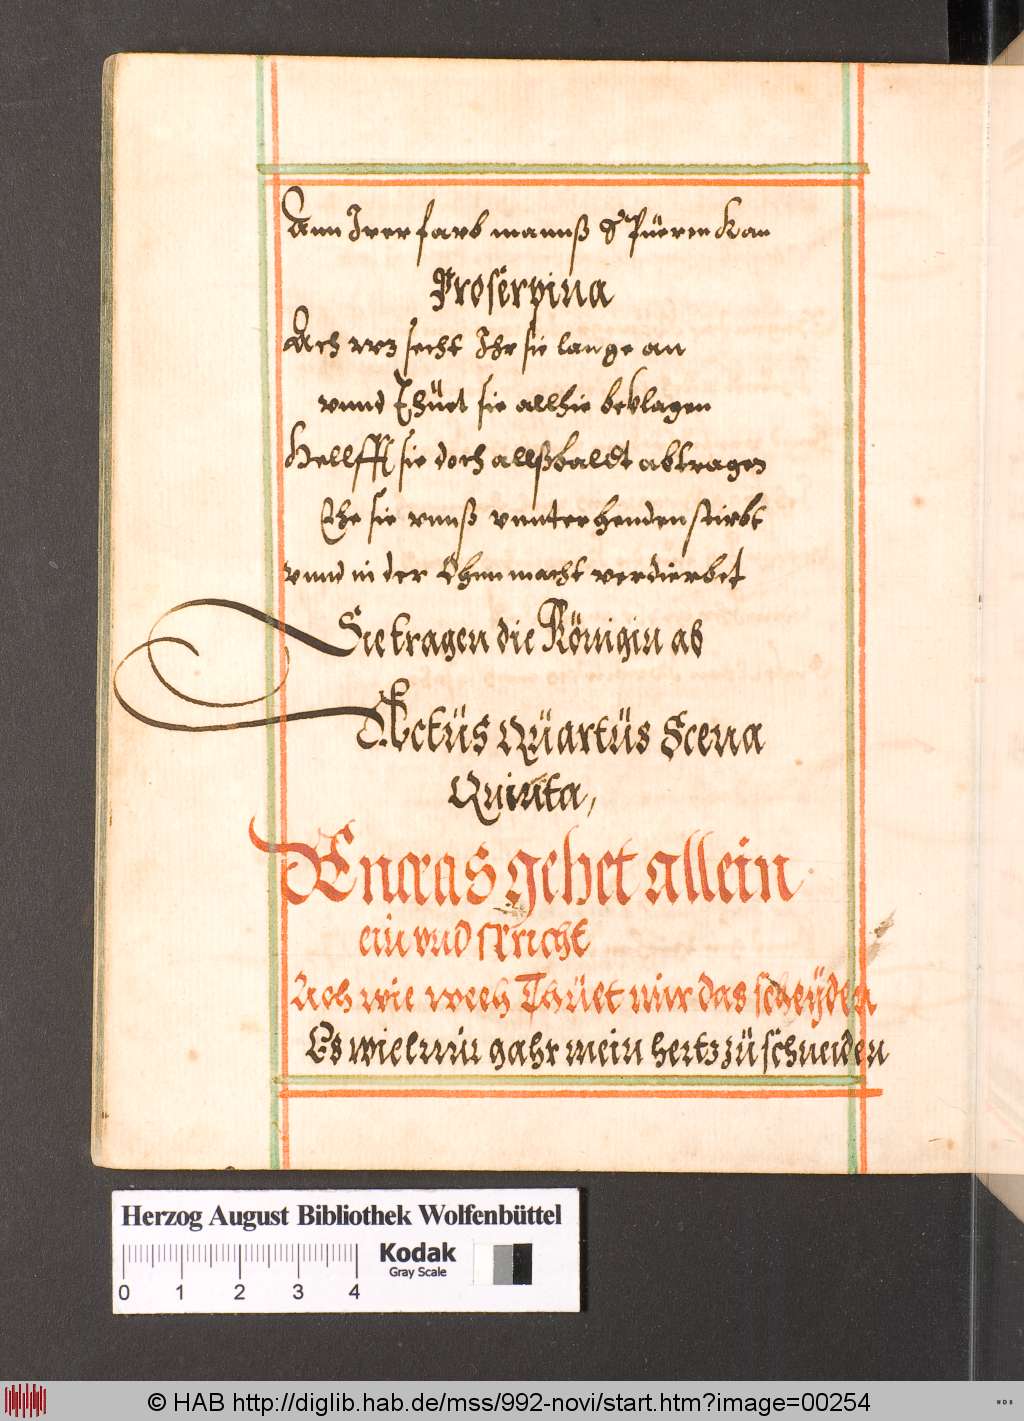 Ann Irer farb mannß spüeren kan
Proserpina
Ach wz secht Ihr sie lange an
vnnd Thüet sie allhie beklagen
Hellfft sie doch allßbaldt abtragen
Ehe sie vnnß vnnter henden stirbt
vnnd in der Ohnmacht verdierbet
Sie tragen die Königin ab
Actüs Qüartüs Scena
Quinta,
Æneas gehet allein
ein vnd spricht
Ach wie weeh Thüet mir das scheÿden
Es wiel mir gahr mein hertz zü schneiden
Herzog August Bibliothek Wolfenbüttel
Kodak
Gray Scale
0 1 2 3 4
© HAB http://diglib.hab.de/mss/992-novi/start.htm?image=00254